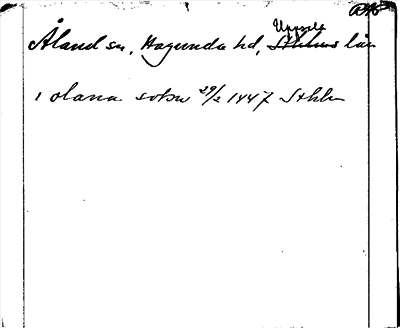 Uppsala
Åland sn, Hagunda hd, Sthlms län
i olana sokn 29/2 1447 Sthlm